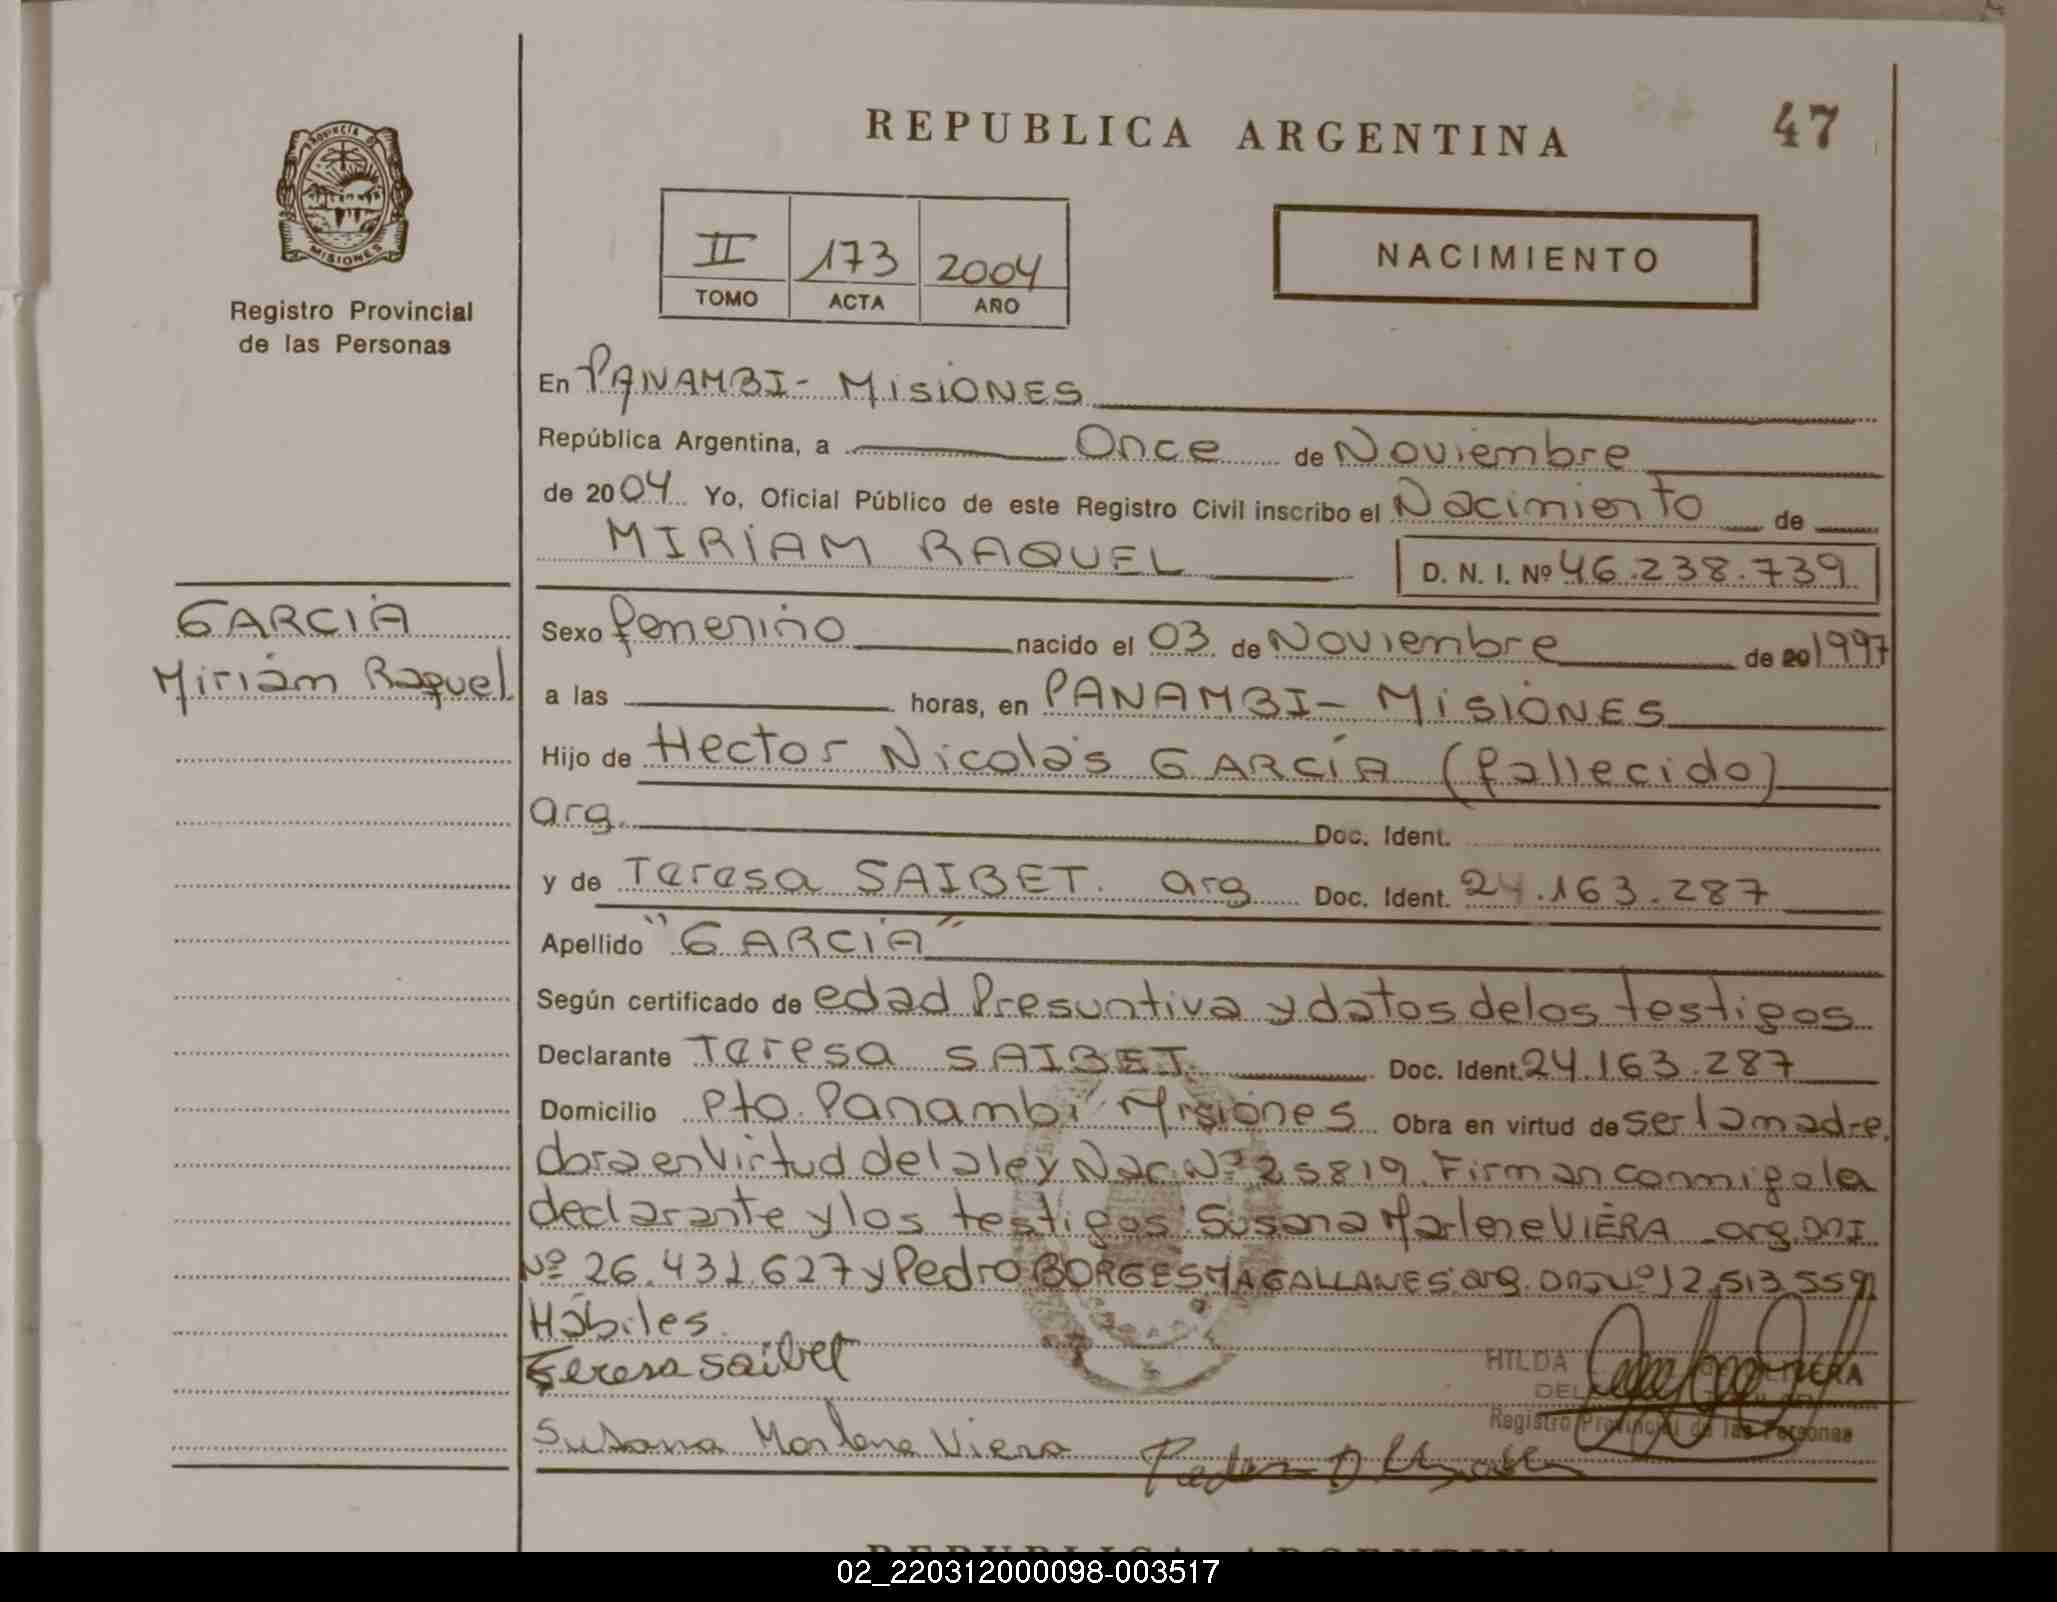 REPUBLICA ARGENTINA
47
PROVINCIA DE MISIONES
Registro Provincial
de las Personas
II 173 2004
TOMO ACTA AÑO
NACIMIENTO
En PANAMBI - MISIONES
República Argentina, a Once de Noviembre
de 2004 Yo, Oficial Público de este Registro Civil inscribo el Nacimiento de
MIRIAM RAQUEL D. N. I. Nº 46.238.739
GARCIA
Miriam Raquel
Sexo femenino nacido el 03 de Noviembre de 20 1997
a las horas, en PANAMBI - MISIONES
Hijo de Hector Nicolás GARCÍA (fallecido)
arg. Doc. Ident.
y de Teresa SAIBET. arg Doc. Ident. 24.163.287
Apellido "GARCIA"
Según certificado de edad Presuntiva y datos de los testigos
Declarante Teresa SAIBET Doc. Ident. 24.163.287
Domicilio Pto. Panambi Misiones Obra en virtud de ser la madre.
obra en virtud de la ley Nac. Nº 25819. Firman conmigo la
declarante y los testigos Susana Marlene VIERA - arg. DNI
Nº 26.431.627 y Pedro BORGES MAGALLANES arg. DNI Nº 12.513.559
Hábiles.
Teresa Saibet
HILDA
Registro Provincial de las Personas
Susana Marlene Viera Pedro
REPUBLICA ARGENTINA
02_220312000098-003517